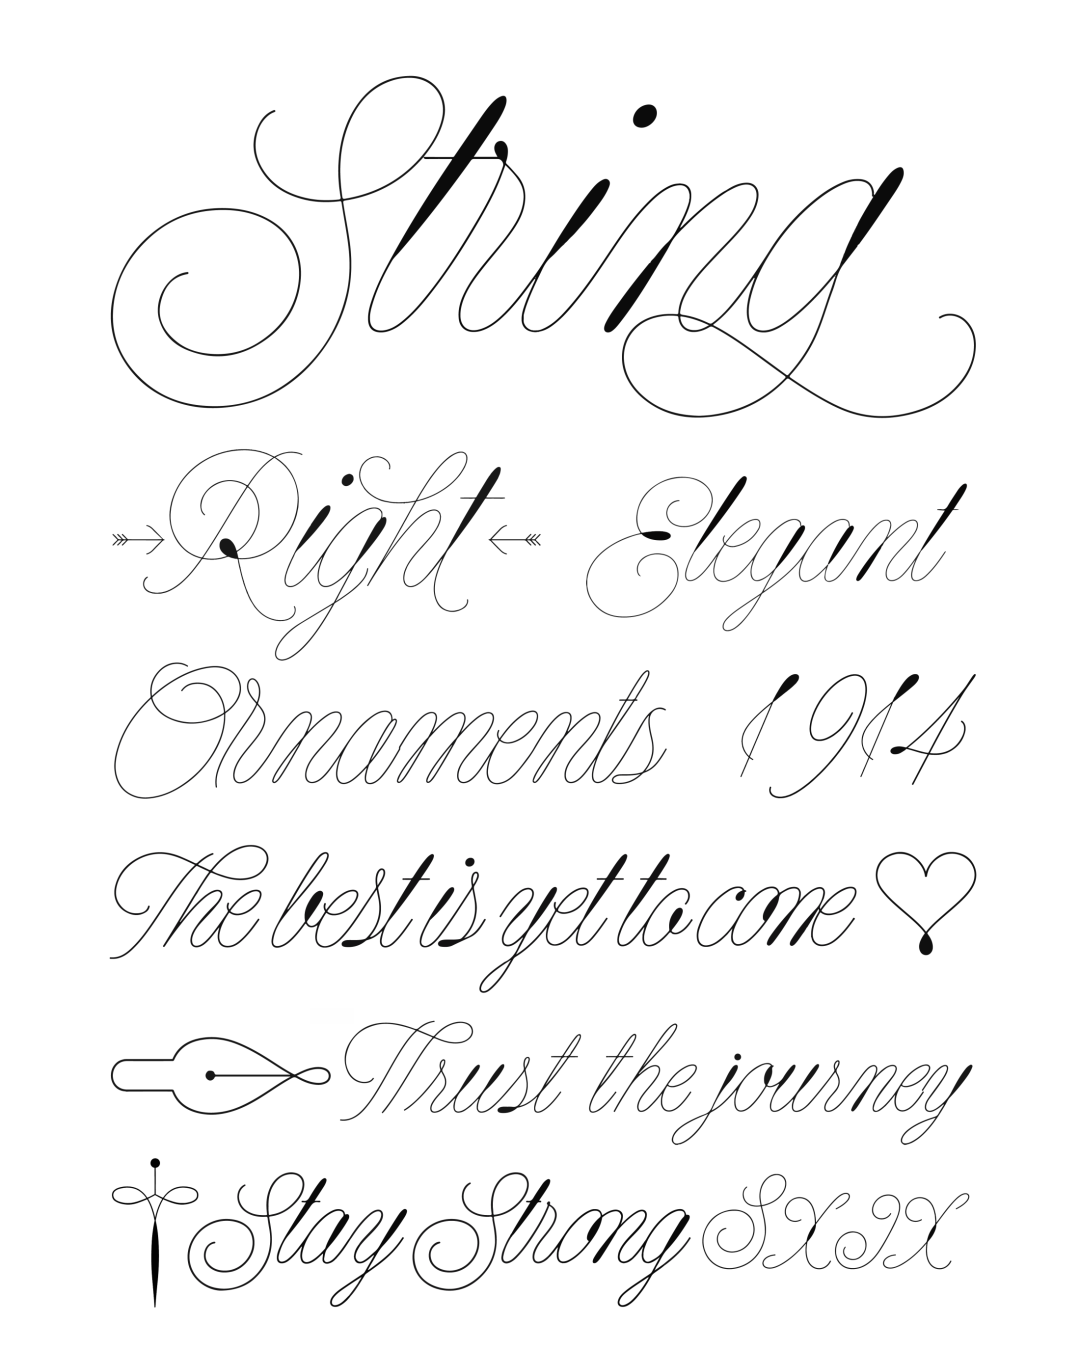 String
Right Elegant
Ornaments 1914
The best is yet to come
Trust the journey
Stay Strong SXIX